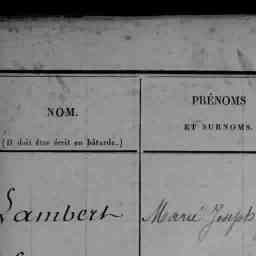 NOM.
(Il doit être écrit en bâtarde.)
PRÉNOMS
ET SURNOMS.
Lambert
Marie Joseph